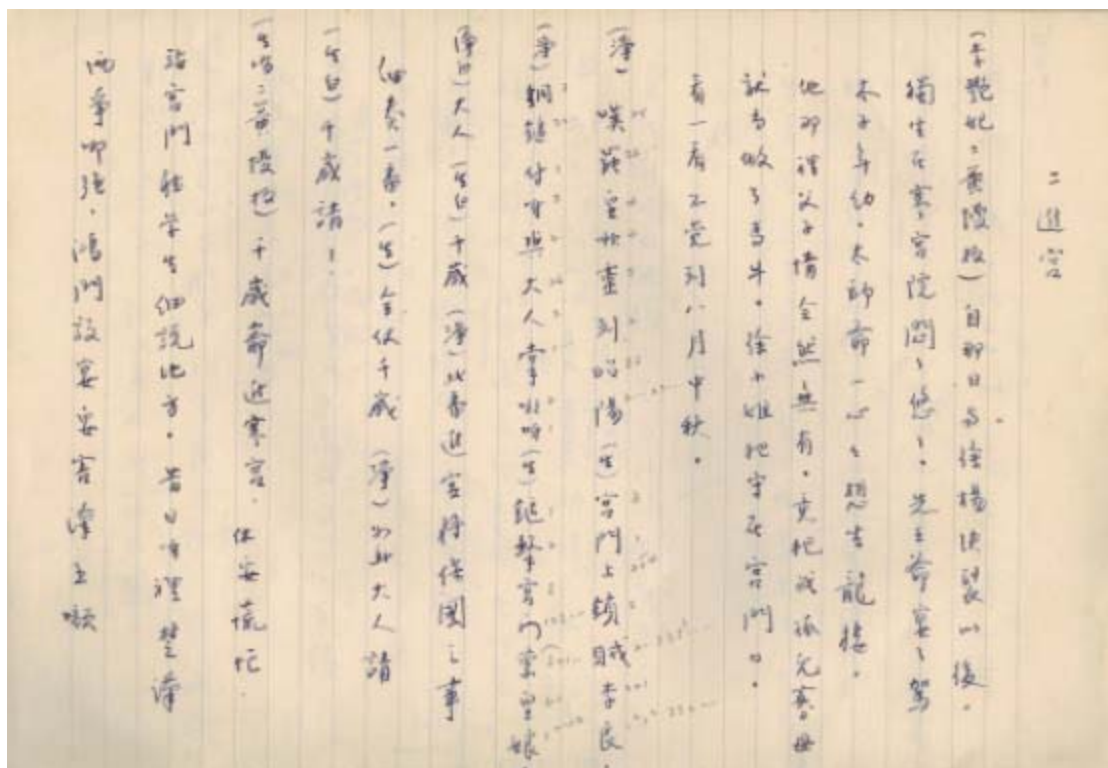 二進宮
(李艷妃二黃慢板)自那日與徐楊決裂以後。
獨坐在寒宮院悶々悠々。先王爺宴々駕
太子年幼。太師爺一心々想坐龍樓。
他那裡父子情全然無有。竟把我孤兒寡母
就當做了馬牛。徐小姐把守在宮門口。
看一看不覺到八月中秋。
(淨)嘆先皇
到昭陽(生)宮門上鎖賊李良
(淨)銅鎚付與大人掌(生)鎚擊宮門
(淨白)大人(生白)千歲(淨)此番進宮將保國之事
細奏一番。(生)全仗千歲(淨)大人請
(生白)千歲請!
(生唱二黃慢板)千歲爺進寒宮。休要慌忙.
站宮門聽學生細說比方。昔日有
楚漢
兩爭
強.鴻門設宴要害漢王